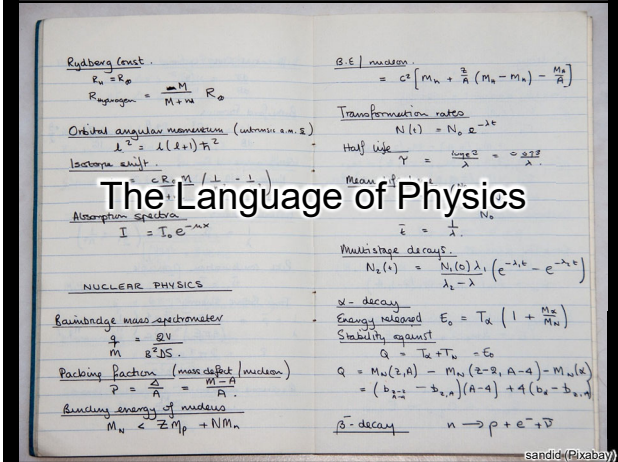 Rydberg Const.
R∞ = R∞
R Hydrogen = M / M + m R∞
Orbital angular momentum (intrinsic a.m. s)
l² = l(l+1)ħ²
Isotope shift.
Absorption spectra
I = I₀e^-μx
NUCLEAR PHYSICS
Bainbridge mass spectrometer
q/m = 2V / B²DS.
Packing fraction (mass defect/nucleon)
P = Δ/A = M-A / A.
Binding energy of nucleus
M_N < ZMp + NMn
The Language of Physics
B.E / nucleon.
= c² [Mn + Z/A (MH - Mn) - Ma/A]
Transformation rates
N(t) = N₀ e^-λt
Half life
Mean
N₀
t̄ = 1/λ.
Multistage decays.
N₂(t) = N₁(0) λ₁ / λ₂ - λ (e^-λ₁t - e^-λ₂t)
α-decay
Energy released E₀ = Tα (1 + Mα/MN)
Stability against
Q = Tα + TN = E₀
Q = MN(Z,A) - MN(Z-2, A-4) - MN(α)
β⁻-decay n → p + e⁻ + ν̄
sandid (Pixabay)